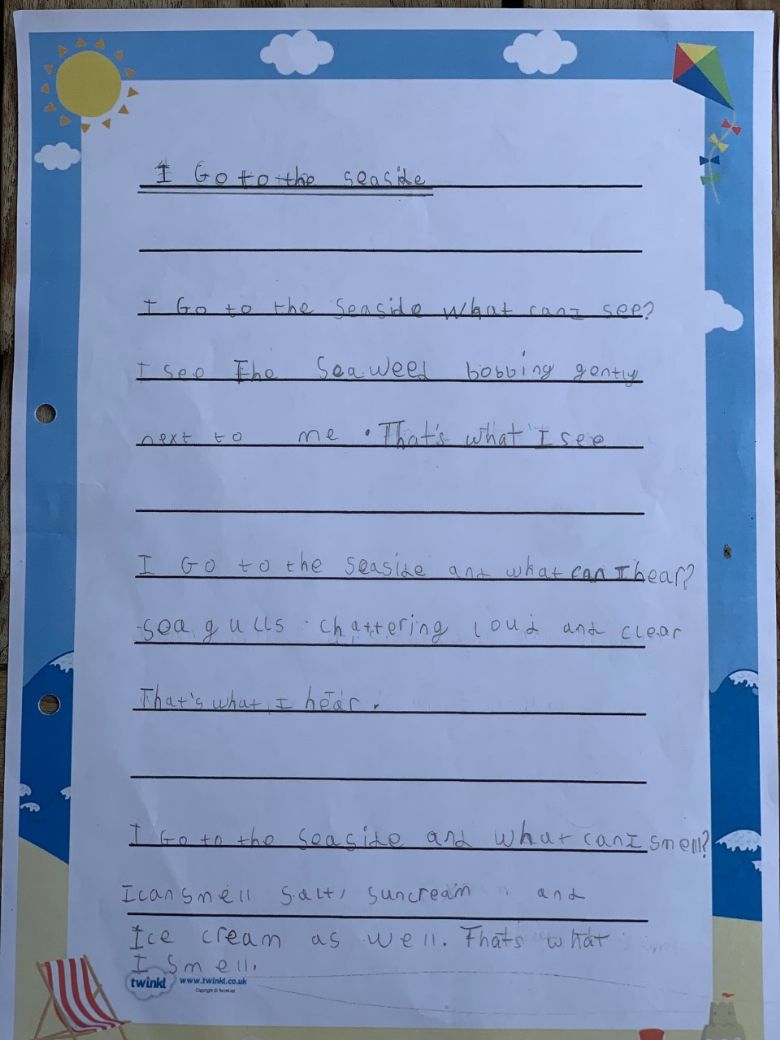 I Go to the seaside
I Go to the Seaside What can I see?
I see The Seaweed bobbing gently
next to me . That's what I see
I Go to the seaside and what can I hear?
Sea gulls chattering loud and clear
That's what I hear .
I Go to the Seaside and what can I smell?
I can smell Salt, suncream and
Ice cream as well. Thats what
I smell.
twinkl www.twinkl.co.uk